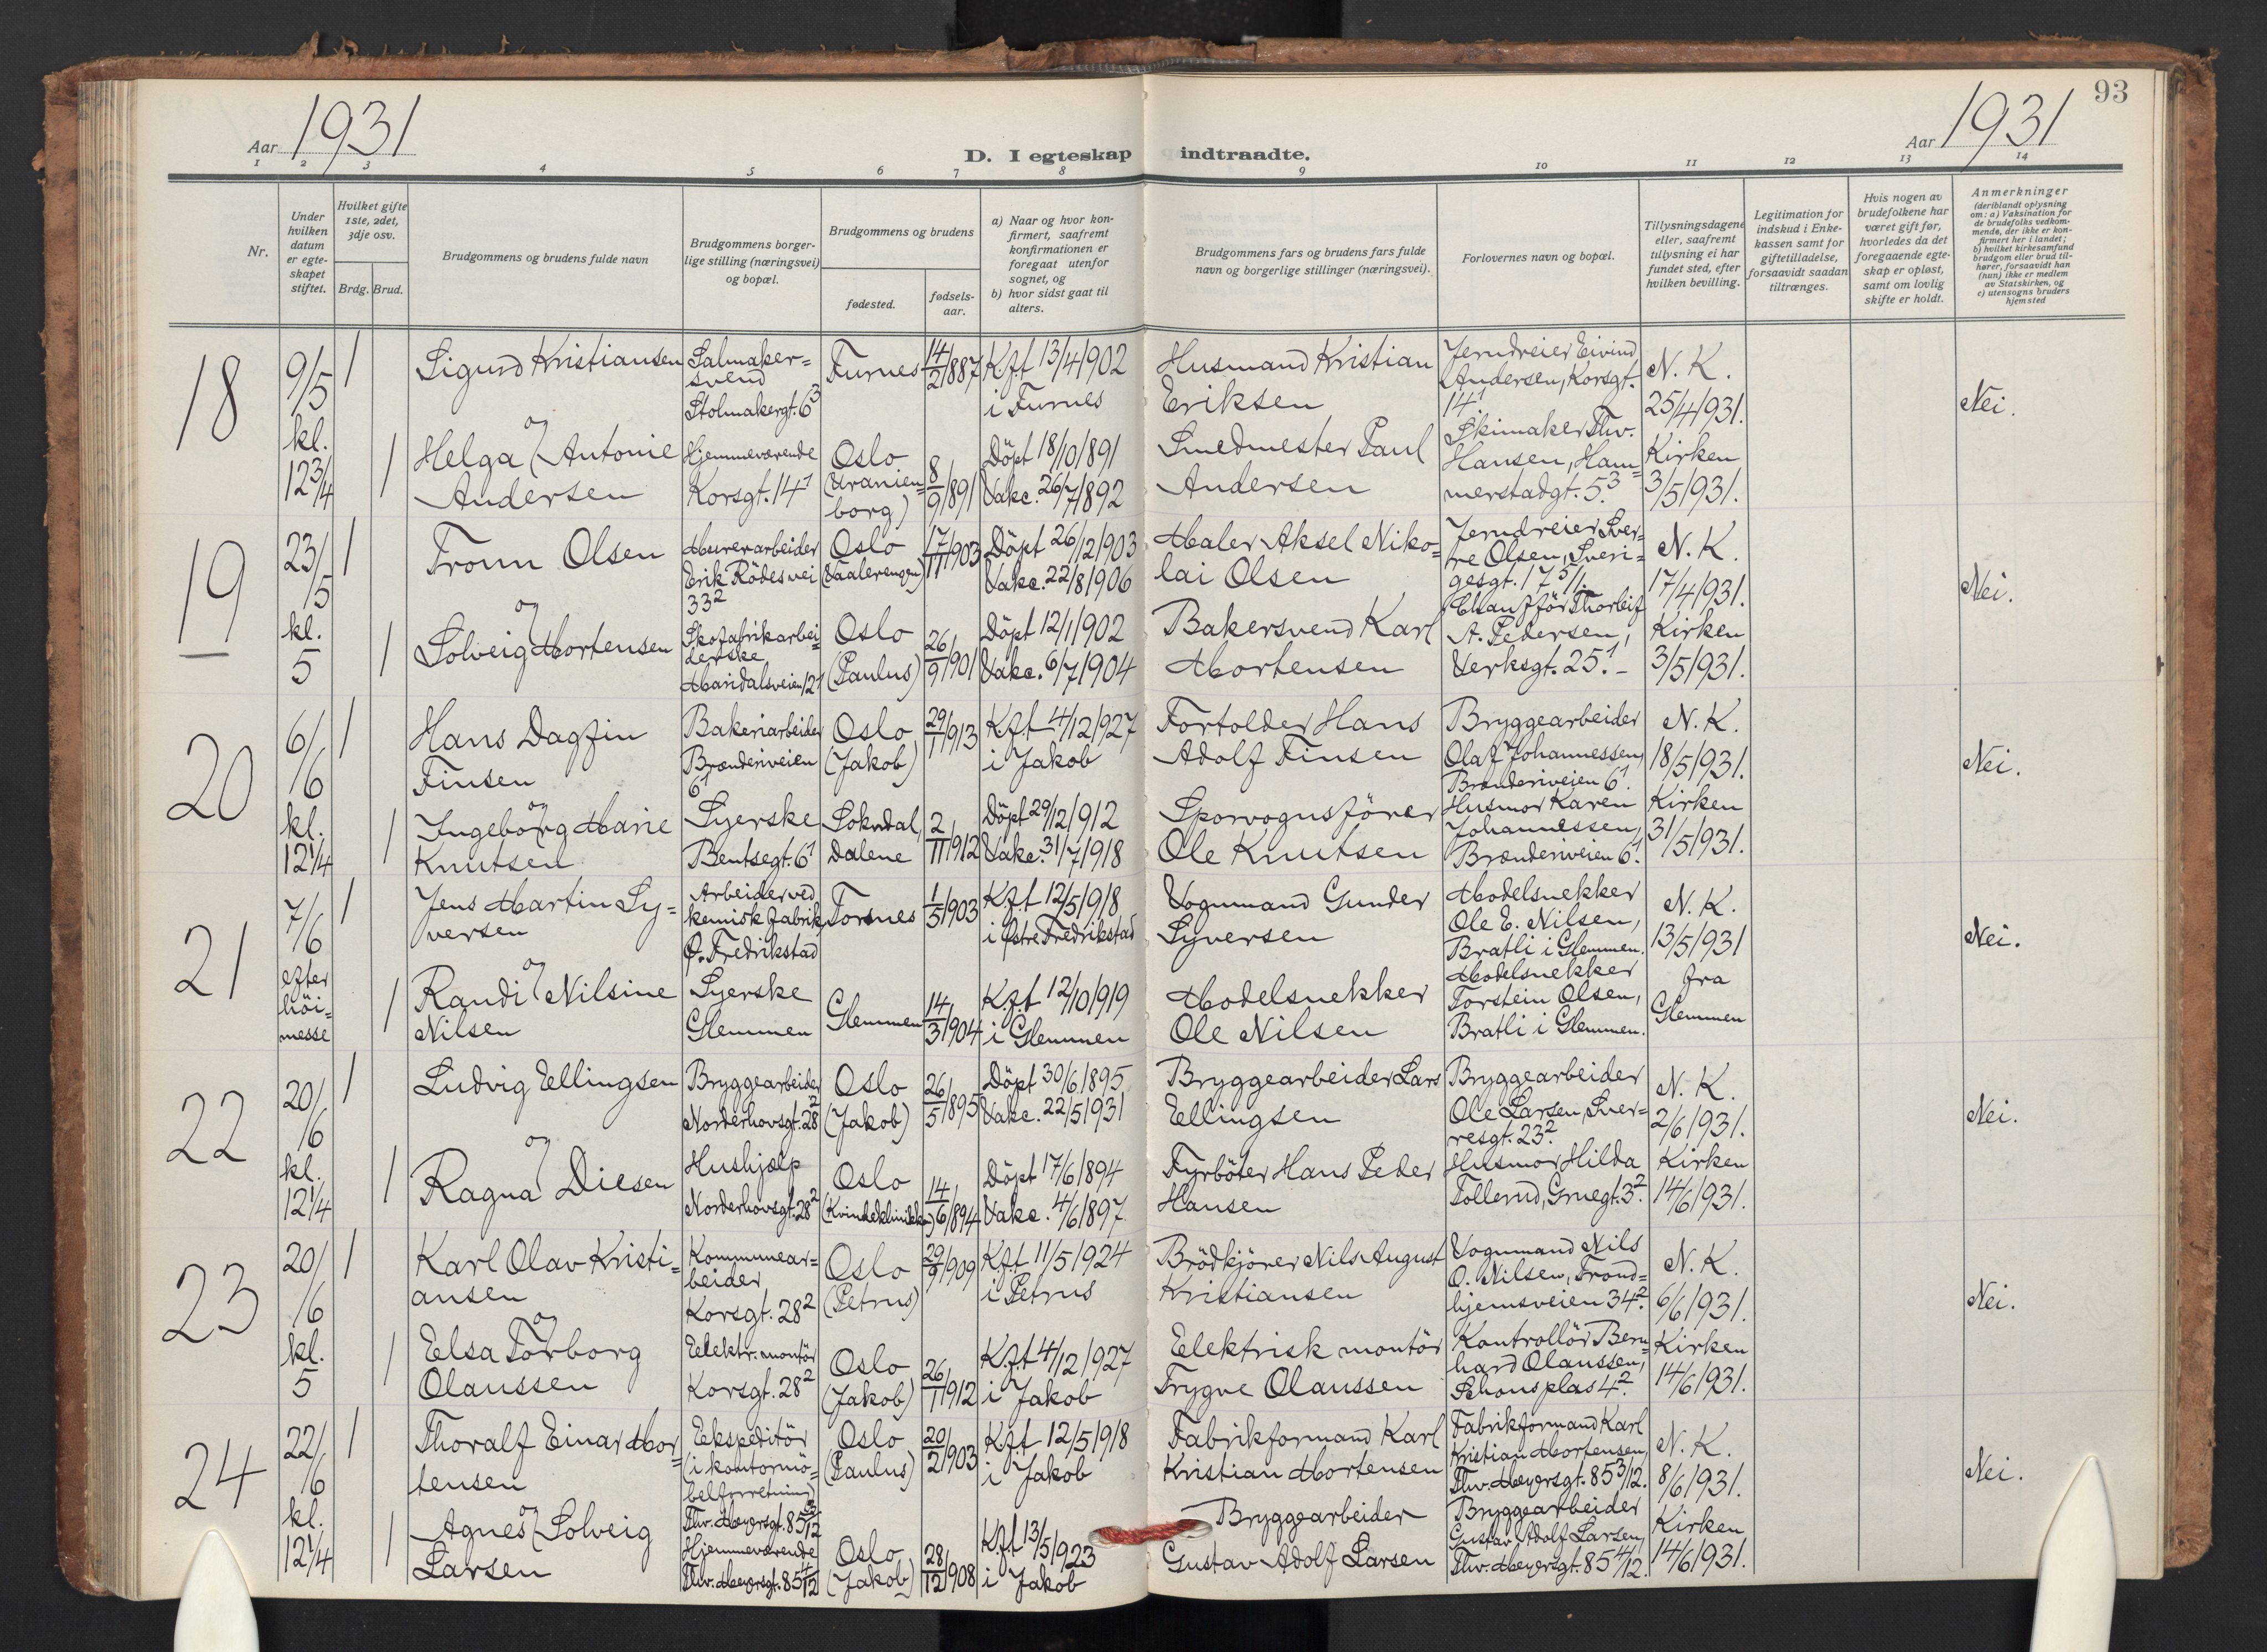 93
Aar 1931
Aar 1931
D. I egteskap indtraadte.
1 2 3 4 5 6 7 8 9 10 11 12 13 14
Nr.
Under
hvilken
datum
er egte-
skapet
stiftet.
Hvilket gifte
1ste, 2det,
3dje osv.
Brdg. Brud.
Brudgommens og brudens fulde navn
Brudgommens borger-
lige stilling (næringsvei)
og bopæl.
Brudgommens og brudens
fødested.
fødsels-
aar.
a) Naar og hvor kon-
firmert, saafremt
konfirmationen er
foregaat utenfor
sognet, og
b) hvor sidst gaat til
alters.
Brudgommens fars og brudens fars fulde
navn og borgerlige stillinger (næringsvei).
Forlovernes navn og bopæl.
Tillysningsdagene
eller, saafremt
tillysning ei har
fundet sted, efter
hvilken bevilling.
Legitimation for
indskud i Enke-
kassen samt for
giftetilladelse,
forsaavidt saadan
tiltrænges.
Hvis nogen av
brudefolkene har
været gift før,
hvorledes da det
foregaaende egte-
skap er opløst,
samt om lovlig
skifte er holdt.
Anmerkninger
(deriblandt oplysning
om: a) Vaksination for
de brudefolks vedkom-
mende, der ikke er kon-
firmert her i landet;
b) hvilket kirkesamfund
brudgom eller brud til-
hører, forsaavidt han
(hun) ikke er medlem
av Statskirken, og
c) utensogns bruders
hjemsted
18
9/5
kl.
12 3/4
1
Sigurd Kristiansen
Salmaker=
svend
Stolmakergt. 6³
Furnes
14/2 1887
Kft 13/4 1902
i Furnes
Husmand Kristian
Eriksen
Jerndreier Eivind
Andersen, Korsgt.
14¹
N. K.
25/4 1931.
Nei.
og
1
Helga Antonie
Andersen
Hjemmeværende
Korsgt. 14¹
Oslo
(Uranien=
borg)
8/9 1891
Döpt 18/10 1891
Vakc. 26/7 1892
Smedmester Paul
Andersen
Skimaker Thv.
Hansen, Ham=
merstadgt. 5³.
Kirken
3/5 1931.
19
23/5
kl.
5
1
Tronn Olsen
Murerarbeider
Erik Rödes vei
33²
Oslo
(Vaalerengen)
17/11 1903
Döpt 26/12 1903
Vakc. 22/8 1906
Maler Aksel Niko=
lai Olsen
Jerndreier Sver=
re Olsen, Sveri=
gesgt. 17 5/1.
N. K.
17/4 1931.
Nei.
og
1
Solveig Mortensen
Skofabrikarbei=
derske
Maridalsveien 12¹
Oslo
(Paulus)
26/9 1901
Döpt 12/1 1902
Vakc. 6/7 1904
Bakersvend Karl
Mortensen
Chaufför Thorleif
A. Pedersen,
Verksgt. 25¹. -
Kirken
3/5 1931.
20
6/6
kl.
12 1/4
1
Hans Dagfin
Finsen
Bakeriarbeider
Brænderiveien
6¹
Oslo
(Jakob)
29/1 1913
Kft 4/12 1927
i Jakob
Fortolder Hans
Adolf Finsen
Bryggearbeider
Olaf Johannessen,
Brænderiveien 6¹.
N. K.
18/5 1931.
Nei.
og
1
Ingeborg Marie
Knutsen
Syerske
Bentsegt. 6¹
Sokndal,
Dalene
2/11 1912
Döpt 29/12 1912
Vakc. 31/7 1918
Sporvognsförer
Ole Knutsen
Husmor Karen
Johannessen,
Brænderiveien 6¹.
Kirken
31/5 1931.
21
7/6
efter
höi=
messe
1
Jens Martin Sy=
versen
Arbeider ved
kemisk fabrik,
Ø. Fredrikstad
Torsnes
1/5 1903
Kft 12/5 1918
i Østre Fredrikstad
Vognmand Gunder
Syversen
Modelsnekker
Ole E. Nilsen,
Bratli i Glemmen.
N. K.
13/5 1931
Nei.
og
1
Randi Nilsine
Nilsen
Syerske
Glemmen
Glemmen
14/3 1904
Kft 12/10 1919
i Glemmen
Modelsnekker
Ole Nilsen
Modelsnekker
Torstein Olsen,
Bratli i Glemmen.
fra
Glemmen
22
20/6
kl.
12 1/4
1
Ludvig Ellingsen
Bryggearbeider
Norderhovsgt. 28²
Oslo
(Jakob)
26/5 1895
Döpt 30/6 1895
Vakc. 22/5 1931
Bryggearbeider Lars
Ellingsen
Bryggearbeider
Ole Larsen, Sver=
resgt. 23².
N. K.
2/6 1931.
Nei.
og
1
Ragna Diesen
Hushjælp
Norderhovsgt. 28²
Oslo
(Kvindeklinikken)
14/6 1894
Döpt 17/6 1894
Vakc. 4/6 1897
Fyrböter Hans Peder
Hansen
Husmor Hilda
Tollerud, Gruegt. 3².
Kirken
14/6 1931.
23
20/6
kl.
5
1
Karl Olav Kristi=
ansen
Kommunear=
beider
Korsgt. 28²
Oslo
(Petrus)
29/9 1909
Kft 11/5 1924
i Petrus
Brödkjörer Nils August
Kristiansen
Vognmand Nils
O. Nilsen, Trond=
hjemsveien 34².
N. K.
6/6 1931.
Nei.
og
1
Elsa Torborg
Olaussen
Eelektr. montör
Korsgt. 28²
Oslo
(Jakob)
26/1 1912
Kft 4/12 1927
i Jakob
Elektrisk montör
Trygve Olaussen
Kontrollör Bern=
hard Olaussen,
Schous plas 4².
Kirken
14/6 1931.
24
22/6
kl.
12 1/4
1
Thoralf Einar Mor=
tensen
Ekspeditör
(i kontormö=
belforretning)
Thv. Meyersgt. 85 3/12
Oslo
(Paulus)
20/2 1903
Kft 12/5 1918
i Jakob
Fabrikformand Karl
Kristian Mortensen
Fabrikformand Karl
Kristian Mortensen,
Thv. Meyersgt. 85 3/12.
N. K.
8/6 1931.
Nei.
og
1
Agnes Solveig
Larsen
Hjemmeværende
Thv. Meyersgt. 85 4/12
Oslo
(Jakob)
28/12 1908
Kft 13/5 1923
i Jakob
Bryggearbeider
Gustav Adolf Larsen
Bryggearbeider
Gustav Adolf Larsen,
Thv. Meyersgt. 85 4/12.
Kirken
14/6 1931.